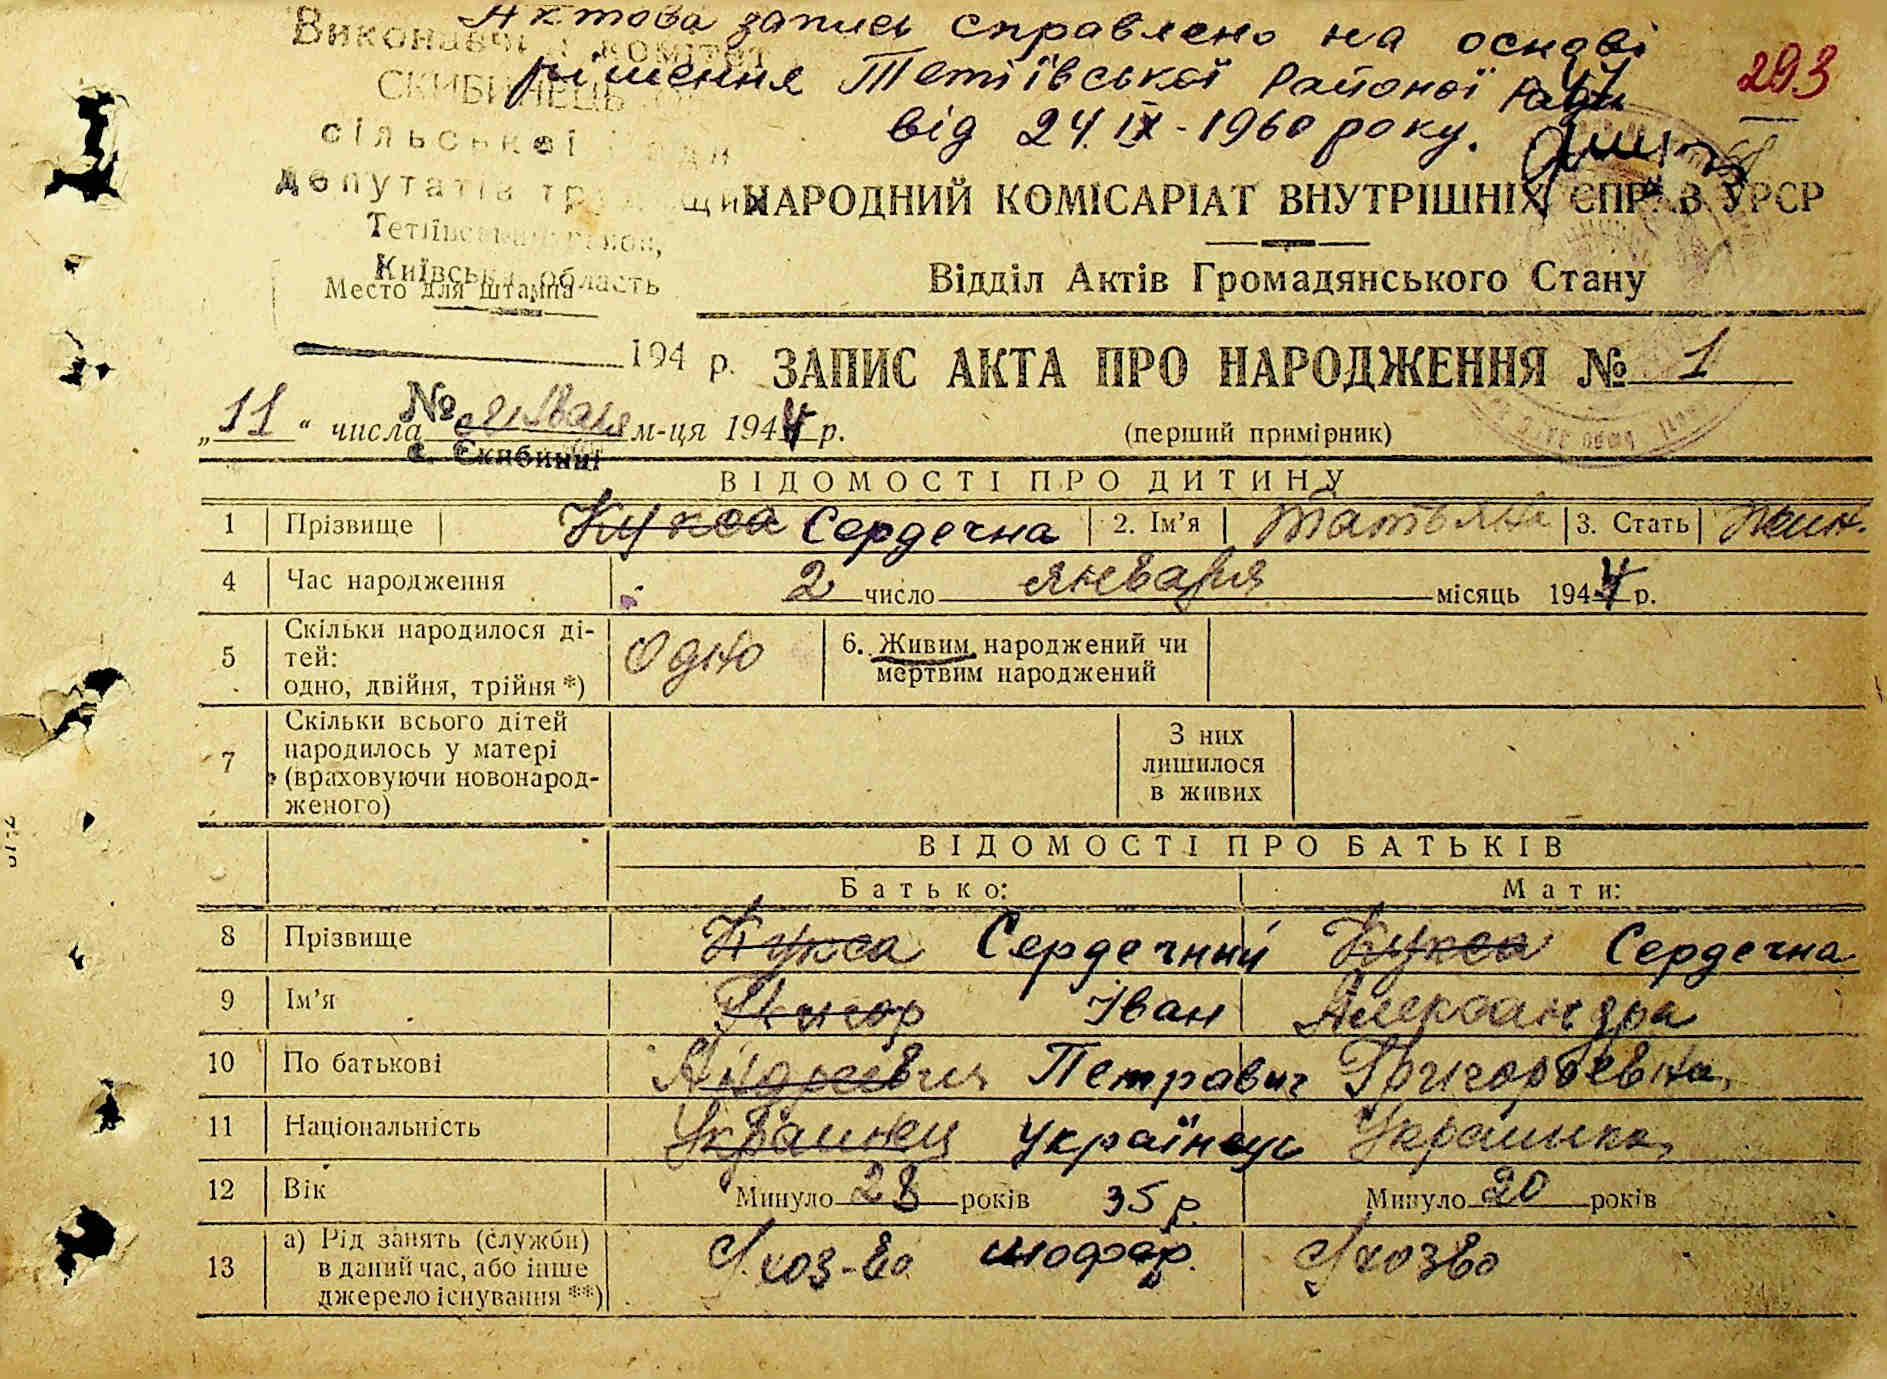 Актова запись справлено на основі
рішення Тетіївської Районої Ради
від 24.IX-1960 року.
293
Виконавчий комітет
СКИБИНЕЦЬКОЇ
сільської Ради
депутатів трудящих
Тетіївський район,
Київська область
Место для штампа
НАРОДНИЙ КОМІСАРІАТ ВНУТРІШНІХ СПРАВ УРСР
Відділ Актів Громадянського Стану
194 р. ЗАПИС АКТА ПРО НАРОДЖЕННЯ № 1
№
„11“ числа января м-ця 1944 р. (перший примірник)
с. Скибинці
ВІДОМОСТІ ПРО ДИТИНУ
1 Прізвище Кукса Сердечна 2. Ім'я Татьяна 3. Стать Жин.
4 Час народження 2 число января місяць 1944 р.
5 Скільки народилося ді-
тей:
одно, двійня, трійня *) Одно 6. Живим народжений чи
мертвим народжений
7 Скільки всього дітей
народилось у матері
(враховуючи новонарод-
женого) З них
лишилося
в живих
ВІДОМОСТІ ПРО БАТЬКІВ
Батько: Мати:
8 Прізвище Кукса Сердечний Кукса Сердечна
9 Ім'я Іван Александра
10 По батькові Андреевич Петрович Григорьевна
11 Національність Украинец Українець Украинка
12 Вік Минуло 28 років 35 р. Минуло 20 років
13 а) Рід занять (служби)
в даний час, або інше
джерело існування **) С/хоз-во шофер. С/хозво